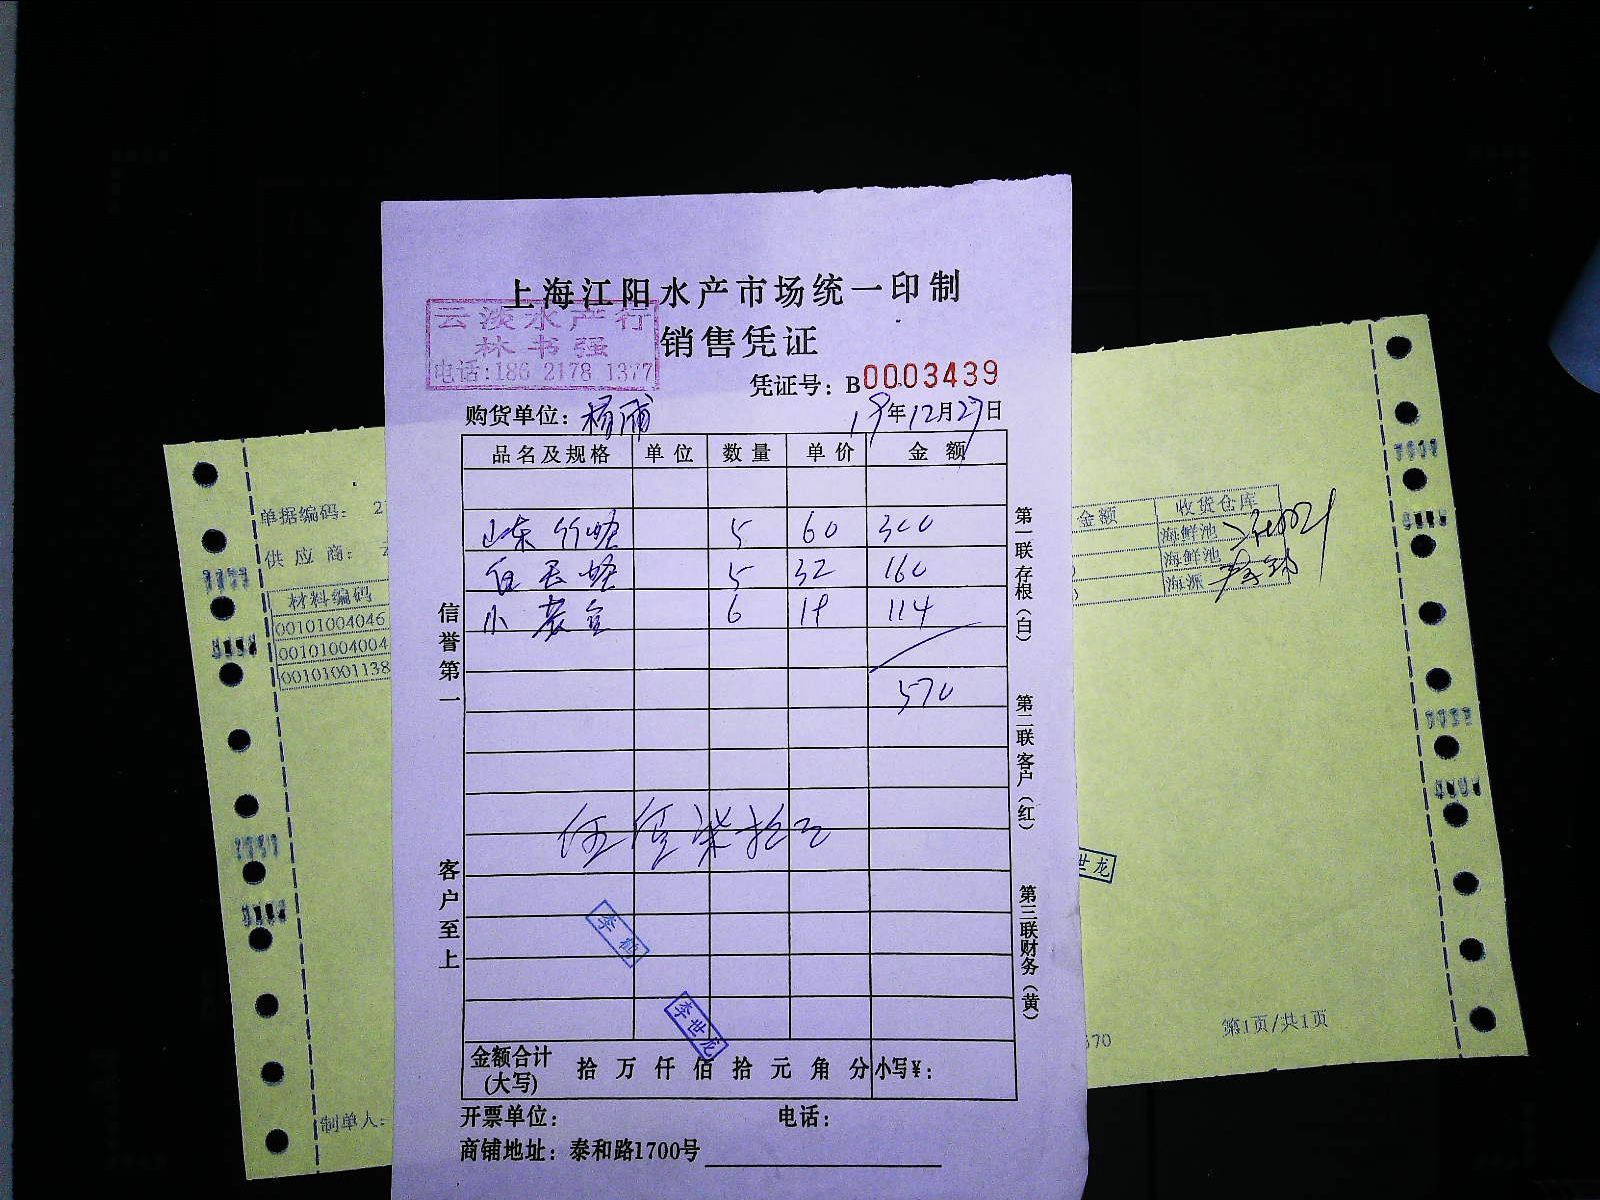 上海江阳水产市场统一印制
云淡水产行
林书强
电话:186 2178 1377
销售凭证
凭证号: B0003439
购货单位: 杨浦 19年12月27日
品名及规格 单位 数量 单价 金额
山东竹蛏 5 60 300
白玉蛏 5 32 160
小黄鱼 6 19 114
570
伍佰柒拾元
信誉第一
客户至上
第一联存根(白)
第二联客户(红)
第三联财务(黄)
李
李世龙
金额合计(大写) 拾万仟佰拾元角分 小写¥:
开票单位: 电话:
商铺地址: 泰和路1700号
单据编码: 2
供应商:
材料编码
00101004046
00101004004
00101001138
制单人:
金额 收货仓库
海鲜池
海鲜池
海派
世龙
570
第1页/共1页